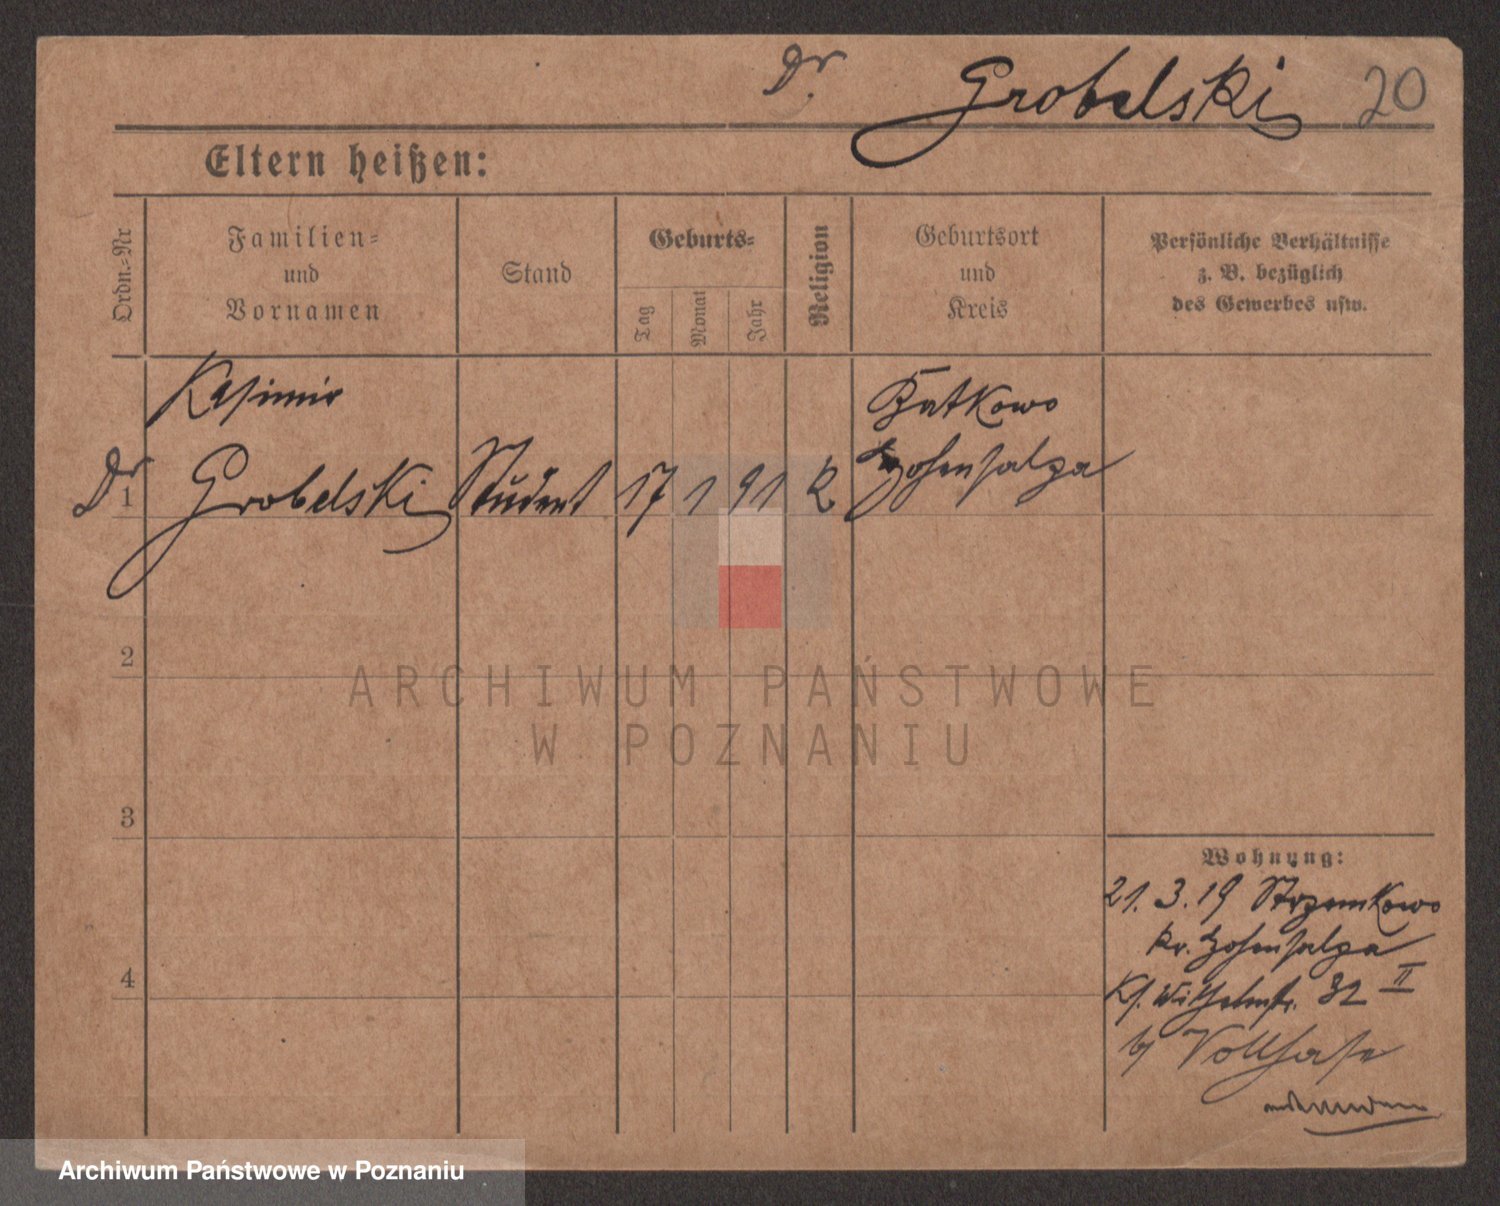 Dr. Grobelski 20
Eltern heißen:
Ordn.-Nr
Familien-
und
Vornamen
Stand
Geburts-
Tag
Monat
Jahr
Religion
Geburtsort
und
Kreis
Persönliche Verhältnisse
z. B. bezüglich
des Gewerbes usw.
Kasimir
Dr
1 Grobelski Student 17 1 91 K
Batkowo
Hohensalza
2
ARCHIWUM PAŃSTWOWE
W POZNANIU
3
Wohnung:
21. 3. 19 Strzemkowo
Kr. Hohensalza
4
Ks. Wilhelmstr. 32 II
b/ Vollhase
Archiwum Państwowe w Poznaniu